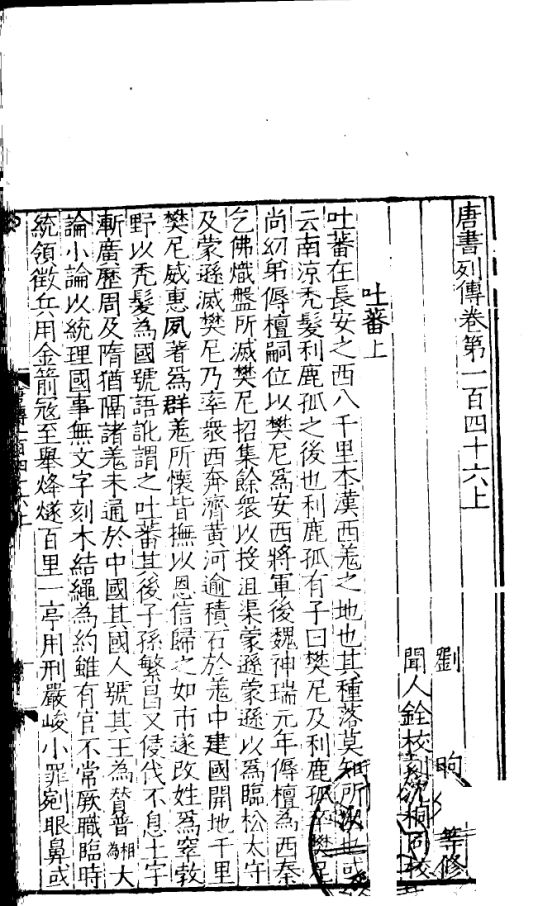 唐書列傳卷第一百四十六上
劉 昫 等修
聞人銓校刻沈桐同校
吐蕃上
吐蕃在長安之西八千里本漢西羌之地也其種落莫知所出也或
云南涼禿髮利鹿孤之後也利鹿孤有子曰樊尼及利鹿孤卒樊尼
尚幼弟傉檀嗣位以樊尼爲安西將軍後魏神瑞元年傉檀為西秦
乞佛熾盤所滅樊尼招集餘衆以投沮渠蒙遜蒙遜以爲臨松太守
及蒙遜滅樊尼乃率衆西奔濟黃河逾積石於羌中建國開地千里
樊尼威惠夙著爲群羌所懷皆撫以恩信歸之如市遂改姓爲窣勃
野以禿髮為國號語訛謂之吐蕃其後子孫繁昌又侵伐不息土宇
漸廣歷周及隋猶隔諸羌未通於中國其國人號其王為贊普相為大
論小論以統理國事無文字刻木結繩為約雖有官不常厥職臨時
統領徵兵用金箭寇至舉烽燧百里一亭用刑嚴峻小罪剜眼鼻或